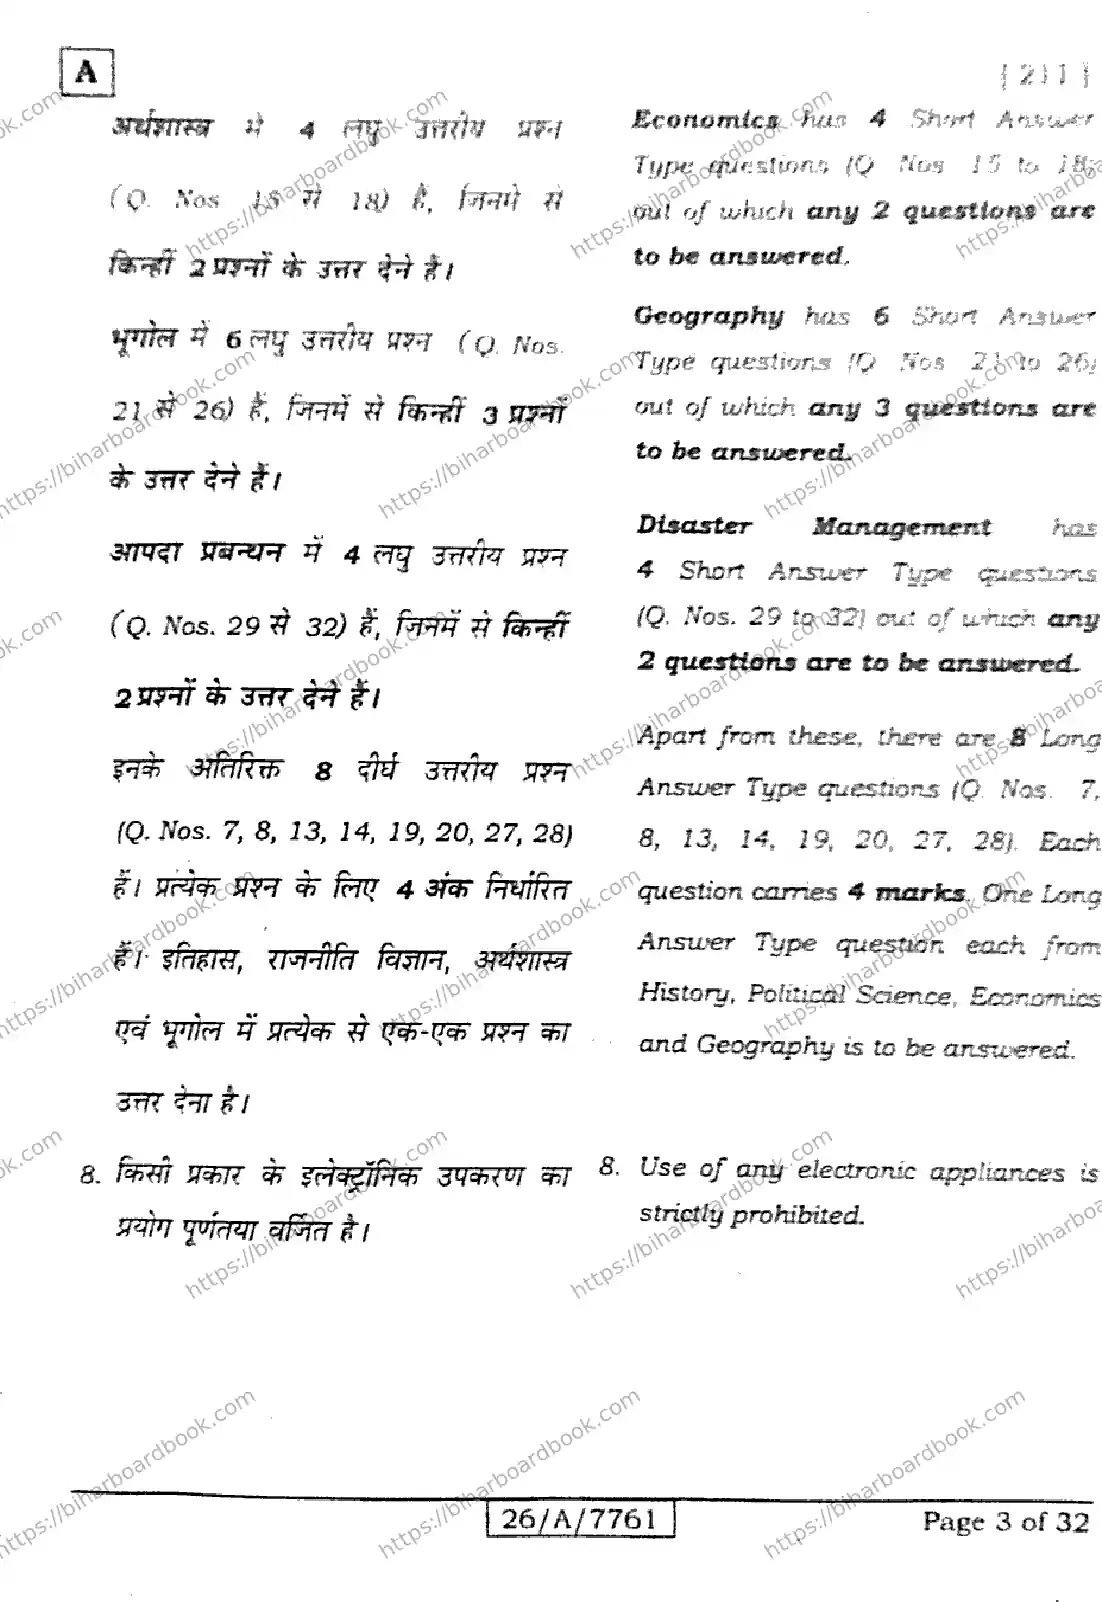 A
[ 211 ]
अर्थशास्त्र में 4 लघु उत्तरीय प्रश्न
(Q. Nos. 15 से 18) हैं, जिनमें से
किन्हीं 2 प्रश्नों के उत्तर देने हैं।
भूगोल में 6 लघु उत्तरीय प्रश्न (Q. Nos.
21 से 26) हैं, जिनमें से किन्हीं 3 प्रश्नों
के उत्तर देने हैं।
आपदा प्रबन्धन में 4 लघु उत्तरीय प्रश्न
(Q. Nos. 29 से 32) हैं, जिनमें से किन्हीं
2 प्रश्नों के उत्तर देने हैं।
इनके अतिरिक्त 8 दीर्घ उत्तरीय प्रश्न
(Q. Nos. 7, 8, 13, 14, 19, 20, 27, 28)
हैं। प्रत्येक प्रश्न के लिए 4 अंक निर्धारित
हैं। इतिहास, राजनीति विज्ञान, अर्थशास्त्र
एवं भूगोल में प्रत्येक से एक-एक प्रश्न का
उत्तर देना है।
8. किसी प्रकार के इलेक्ट्रॉनिक उपकरण का
प्रयोग पूर्णतया वर्जित है।
Economics has 4 Short Answer
Type questions (Q. Nos. 15 to 18)
out of which any 2 questions are
to be answered.
Geography has 6 Short Answer
Type questions (Q. Nos. 21 to 26)
out of which any 3 questions are
to be answered.
Disaster Management has
4 Short Answer Type questions
(Q. Nos. 29 to 32) out of which any
2 questions are to be answered.
Apart from these, there are 8 Long
Answer Type questions (Q. Nos. 7,
8, 13, 14, 19, 20, 27, 28). Each
question carries 4 marks. One Long
Answer Type question each from
History, Political Science, Economics
and Geography is to be answered.
8. Use of any electronic appliances is
strictly prohibited.
26/A/7761
Page 3 of 32
https://biharboardbook.com